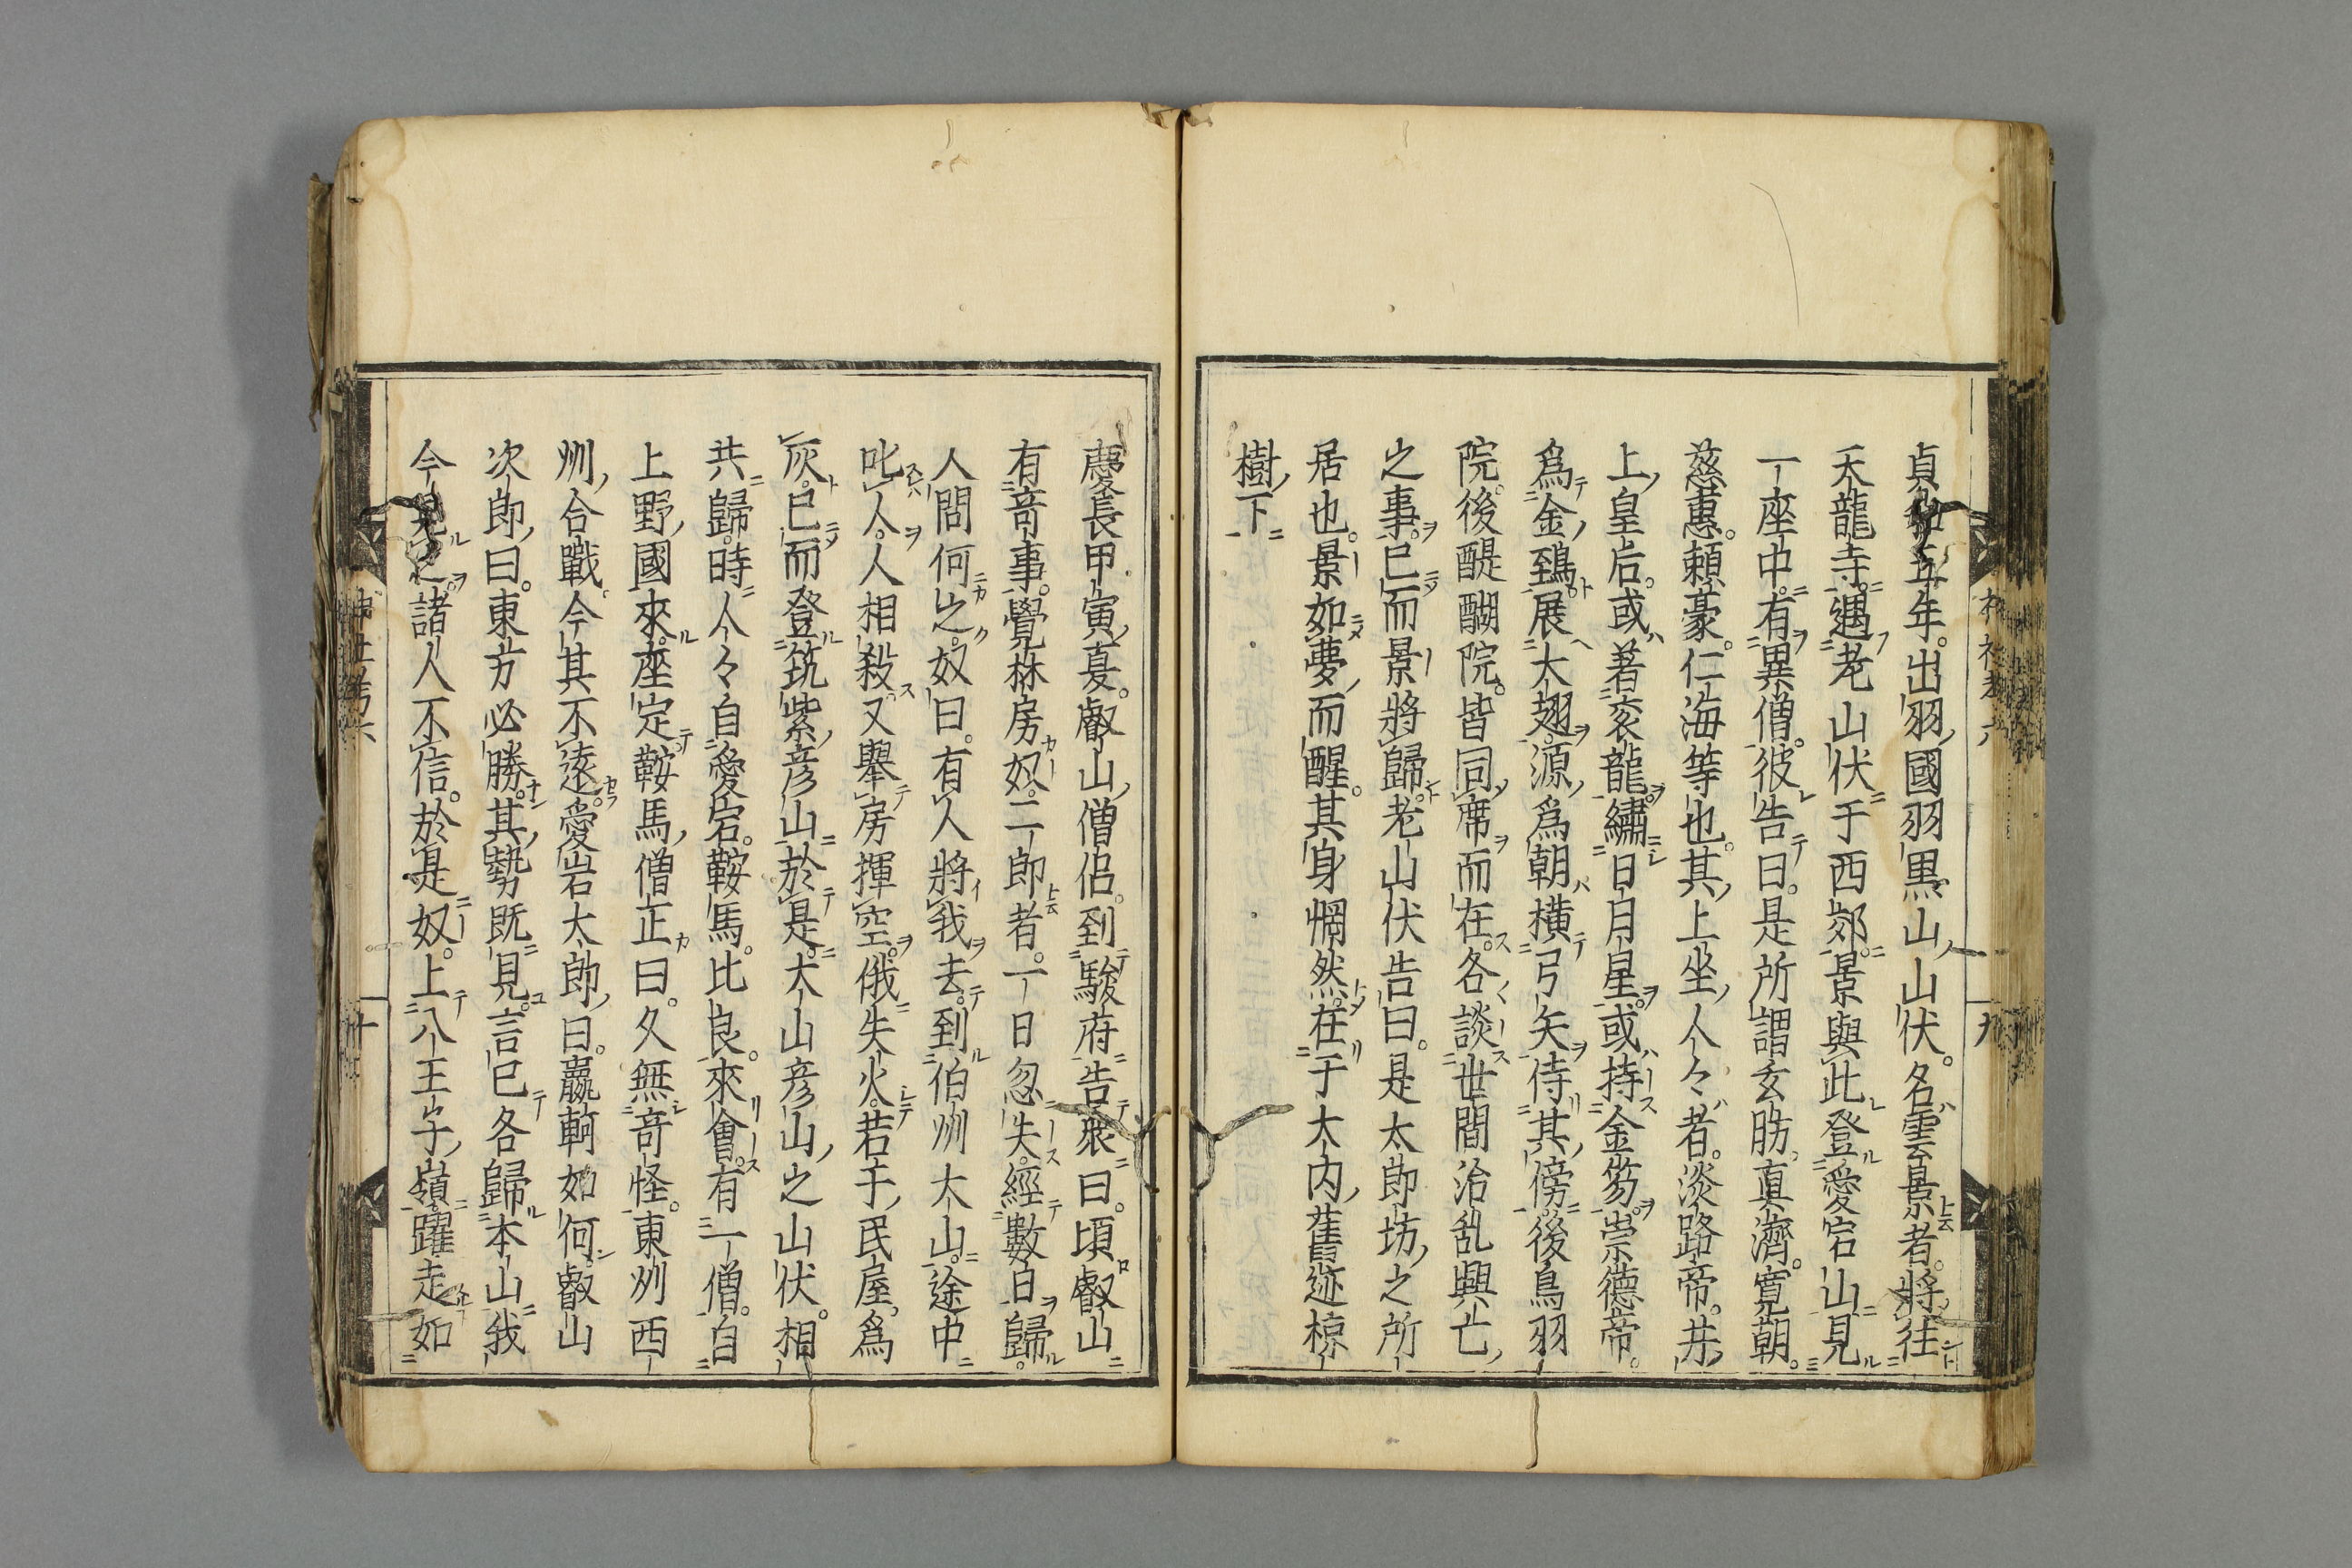 貞和五年。出羽國羽黒山山伏。名雲景者。將往
天龍寺。遇老山伏于西郊。景與此登愛宕山見
一座中。有異僧。彼告曰。是所謂玄昉。真濟。寛朝。
慈惠。頼豪。仁海等也。其上坐人々者。淡路帝。井
上皇后。或著衮龍繡日月星。或持金笏。崇德帝。
爲金鵄展大翅。源爲朝橫弓矢侍其傍。後鳥羽
院。後醍醐院。皆同席而在。各談世間治乱與亡
之事。已而景將歸。老山伏告曰。是太郎坊之所
居也。景如夢而醒。其身惘然。在于大内舊迹椋
樹下
神社考六
九
慶長甲寅夏。叡山僧侶。到駿府告衆曰。頃叡山
有竒事。覺林房奴。二郎者。一日忽失。經數日歸。
人問何之。奴曰。有人將我去。到伯州大山。途中
叱人。人相殺。又擧房揮空。俄失火。若干民屋。爲
灰。已而登筑紫彦山。於是大山彦山之山伏。相
共歸。時人々自愛宕。鞍馬。比良。來會。有一僧。自
上野國來。座定鞍馬僧正曰。久無竒怪。東州西
州合戰。今其不遠。愛宕太郎曰。嬴輸如何。叡山
次郎曰。東方必勝。其勢既見。言已各歸本山。我
今見之。諸人不信。於是奴。上八王子嶺。躍走如
神社考六
十